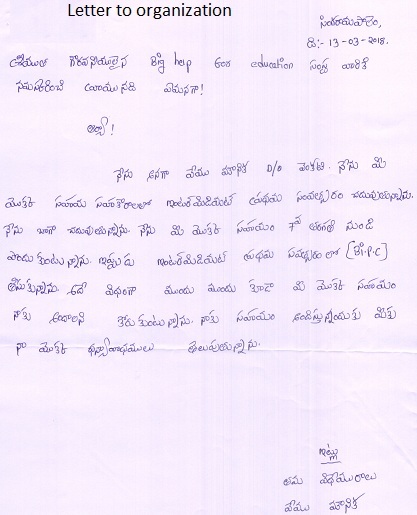 Letter to organization
సీతారామపాలెం,
ది:- 13-03-2018.
శ్రీయుత గౌరవనీయులైన Big help for education సంస్థ వారికి
నమస్కరించి వ్రాయునది ఏమనగా!
అయ్యా!
నేను అనగా వేము మౌనిక D/o వెంకట. నేను మీ
యొక్క సహాయ సహకారాలతో ఇంటర్మీడియట్ ప్రథమ సంవత్సరం చదువుతున్నాను.
నేను బాగా చదువుతున్నాను. నేను మీ యొక్క సహాయం 7వ తరగతి నుండి
పొందుకుంటున్నాను. ఇప్పుడు ఇంటర్మీడియట్ ప్రథమ సంవత్సరం లో [Bi.P.C]
తీసుకున్నాను. ఇదే విధంగా ముందు ముందు కూడా మీ యొక్క సహాయం
నాకు అందాలని కోరుకుంటున్నాను. నాకు సహాయం అందిస్తున్నందుకు మీకు
నా యొక్క ధన్యవాదములు తెలుపుతున్నాను.
ఇట్లు
తమ విధేయురాలు
వేము మౌనిక